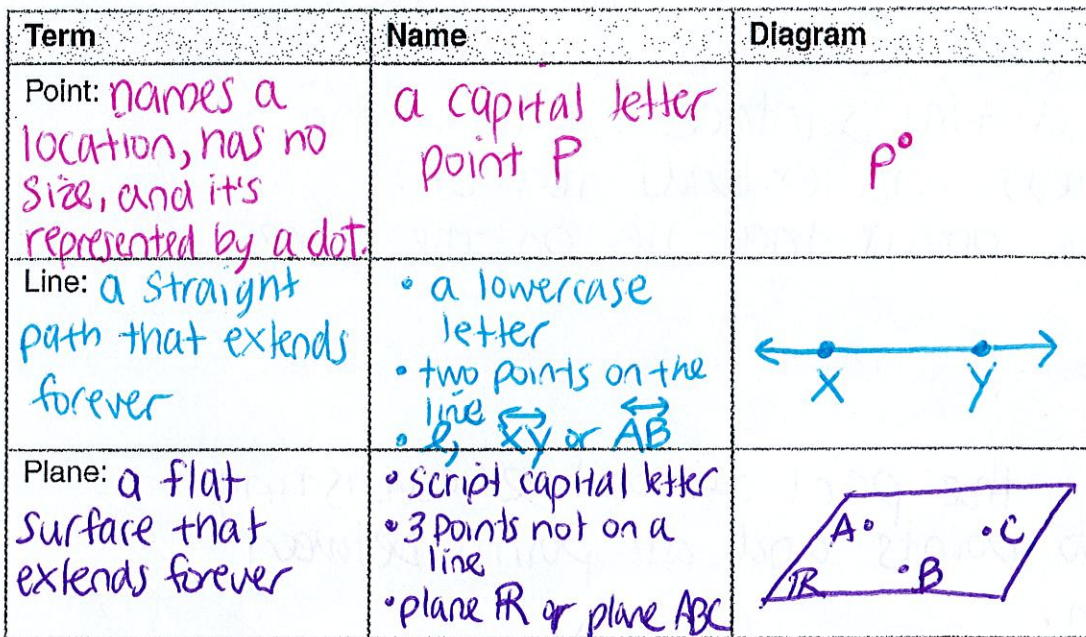 Term
Name
Diagram
Point: names a
location, has no
size, and it's
represented by a dot.
a capital letter
point P
P
Line: a straight
path that extends
forever
• a lowercase
letter
• two points on the
line
• ℓ, XY or AB
X Y
Plane: a flat
surface that
extends forever
• script capital letter
• 3 points not on a
line
• plane R or plane ABC
A C
R B